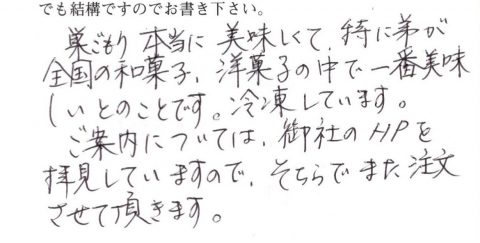 でも結構ですのでお書き下さい。
巣ごもり 本当に 美味しくて、特に弟が
全国の和菓子、洋菓子の中で一番美味
しいとのことです。冷凍しています。
ご案内については、御社のHPを
拝見していますので、そちらでまた注文
させて頂きます。